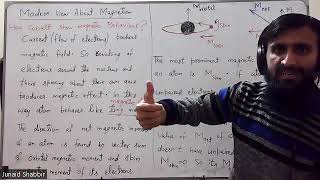 Modern View About Magnetism
How Cobalt show magnetic Behaviour?
Current (flow of electrons) produces
magnetic field. So Revolving of
electrons around the nucleus and
their spinning about their own axis
produces magnetic effect. In this
way atom behaves like tiny magnet
The direction of net magnetic moment
of an atom is found by vector sum
of orbital magnetic moment and spin
moment of its electrons.
M orbital
M spin
M net
The most prominent
an atom is M spin. If
unpaired electrons
Value of M net of
doesn't have unpaired
M spin = 0 So its M
Junaid Shabbir